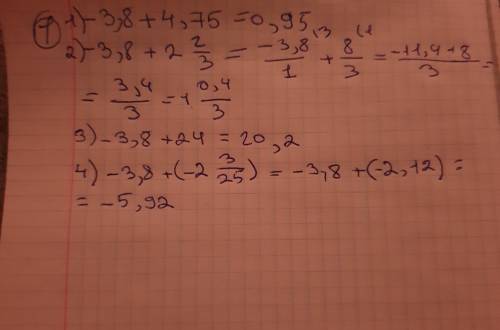 7) 1) -3,8 + 4,75 = 0,95
2) -3,8 + 2 2/3 = -3,8/1 ⁽³ + 8/3 ⁽¹ = -11,4+8/3 =
= 3,4/3 = 1 0,4/3
3) -3,8 + 24 = 20,2
4) -3,8 + (-2 3/25) = -3,8 + (-2,12) =
= -5,92